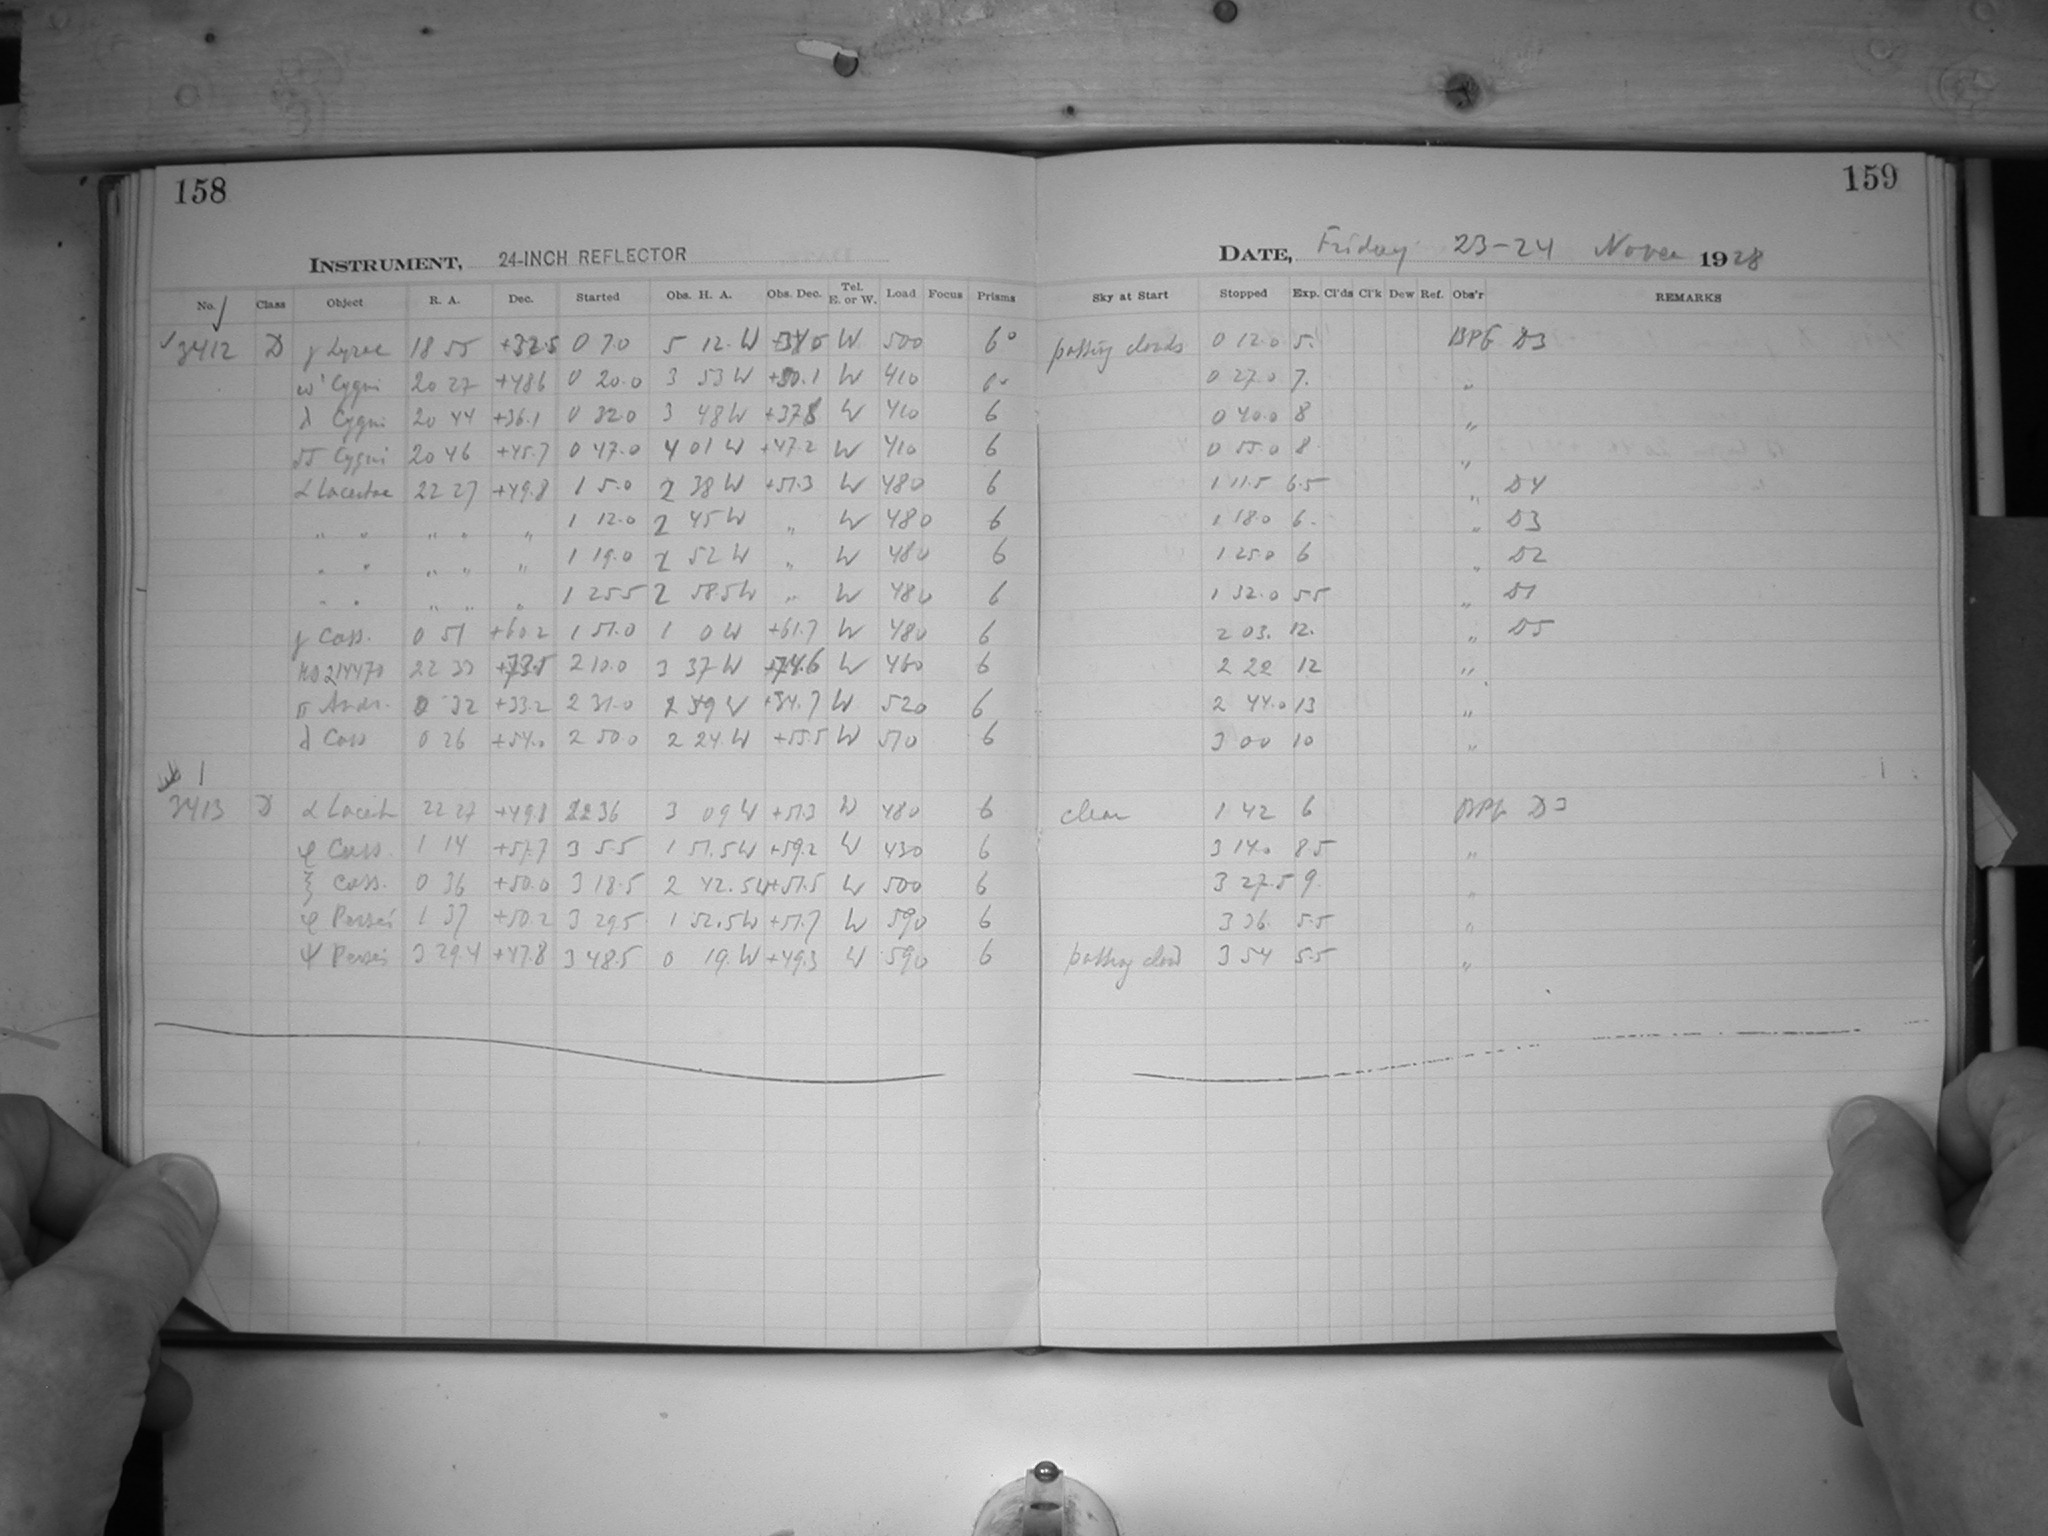 158
159
INSTRUMENT, 24-INCH REFLECTOR
DATE, Friday 23-24 Novem 1928
No. Class Object R. A. Dec. Started Obs. H. A. Obs. Dec. Tel. E. or W. Load Focus Prisms Sky at Start Stopped Exp. Cl'ds Cl'k Dew Ref. Obs'r REMARKS
3412 D γ Lyrae 18 55 +32.5 0 7.0 5 12 W +34.0 W 500 6° passing clouds 0 12.0 5. D3
ω' Cygni 20 27 +48.6 0 20.0 3 53 W +50.1 W 410 0 27.0 7. "
λ Cygni 20 44 +36.1 0 32.0 3 48 W +37.8 W 410 6 0 40.0 8 "
55 Cygni 20 46 +45.7 0 47.0 4 01 W +47.2 W 410 6 0 55.0 8 "
α Lacertae 22 27 +49.8 1 5.0 2 38 W +51.3 W 480 6 1 11.5 6.5 " D4
" " " " " 1 12.0 2 45 W " W 480 6 1 18.0 6. " D3
" " " " " 1 19.0 2 52 W " W 480 6 1 25.0 6 " D2
" " " " " 1 25.5 2 58.5 W " W 480 6 1 32.0 5.5 " D1
γ Cass. 0 51 +60.2 1 51.0 1 0 W +61.7 W 480 6 2 03. 12. " D5
HD 214470 22 33 +73.5 2 10.0 3 37 W +74.6 W 460 6 2 22 12 "
π Andr. 0 32 +33.2 2 31.0 W +34.7 W 520 6 2 44.0 13 "
λ Cass 0 26 +54.0 2 50.0 2 24 W +55.5 W 510 6 3 00 10 "
3413 D α Lacert 22 27 +49.8 36 3 09 W +51.3 W 480 6 clear 1 42 6 D3
φ Cass. 1 14 +57.7 3 5.5 1 51.5 W +59.2 W 430 6 3 14.0 8.5 "
ξ Cass. 0 36 +50.0 3 18.5 2 42.5 W +51.5 W 500 6 3 27.5 9. "
φ Persei 1 37 +50.2 3 29.5 1 52.5 W +51.7 W 590 6 3 36. 5.5 "
ψ Persei 3 29.4 +47.8 3 48.5 0 19. W +49.3 W 590 6 passing cloud 3 54 5.5 "